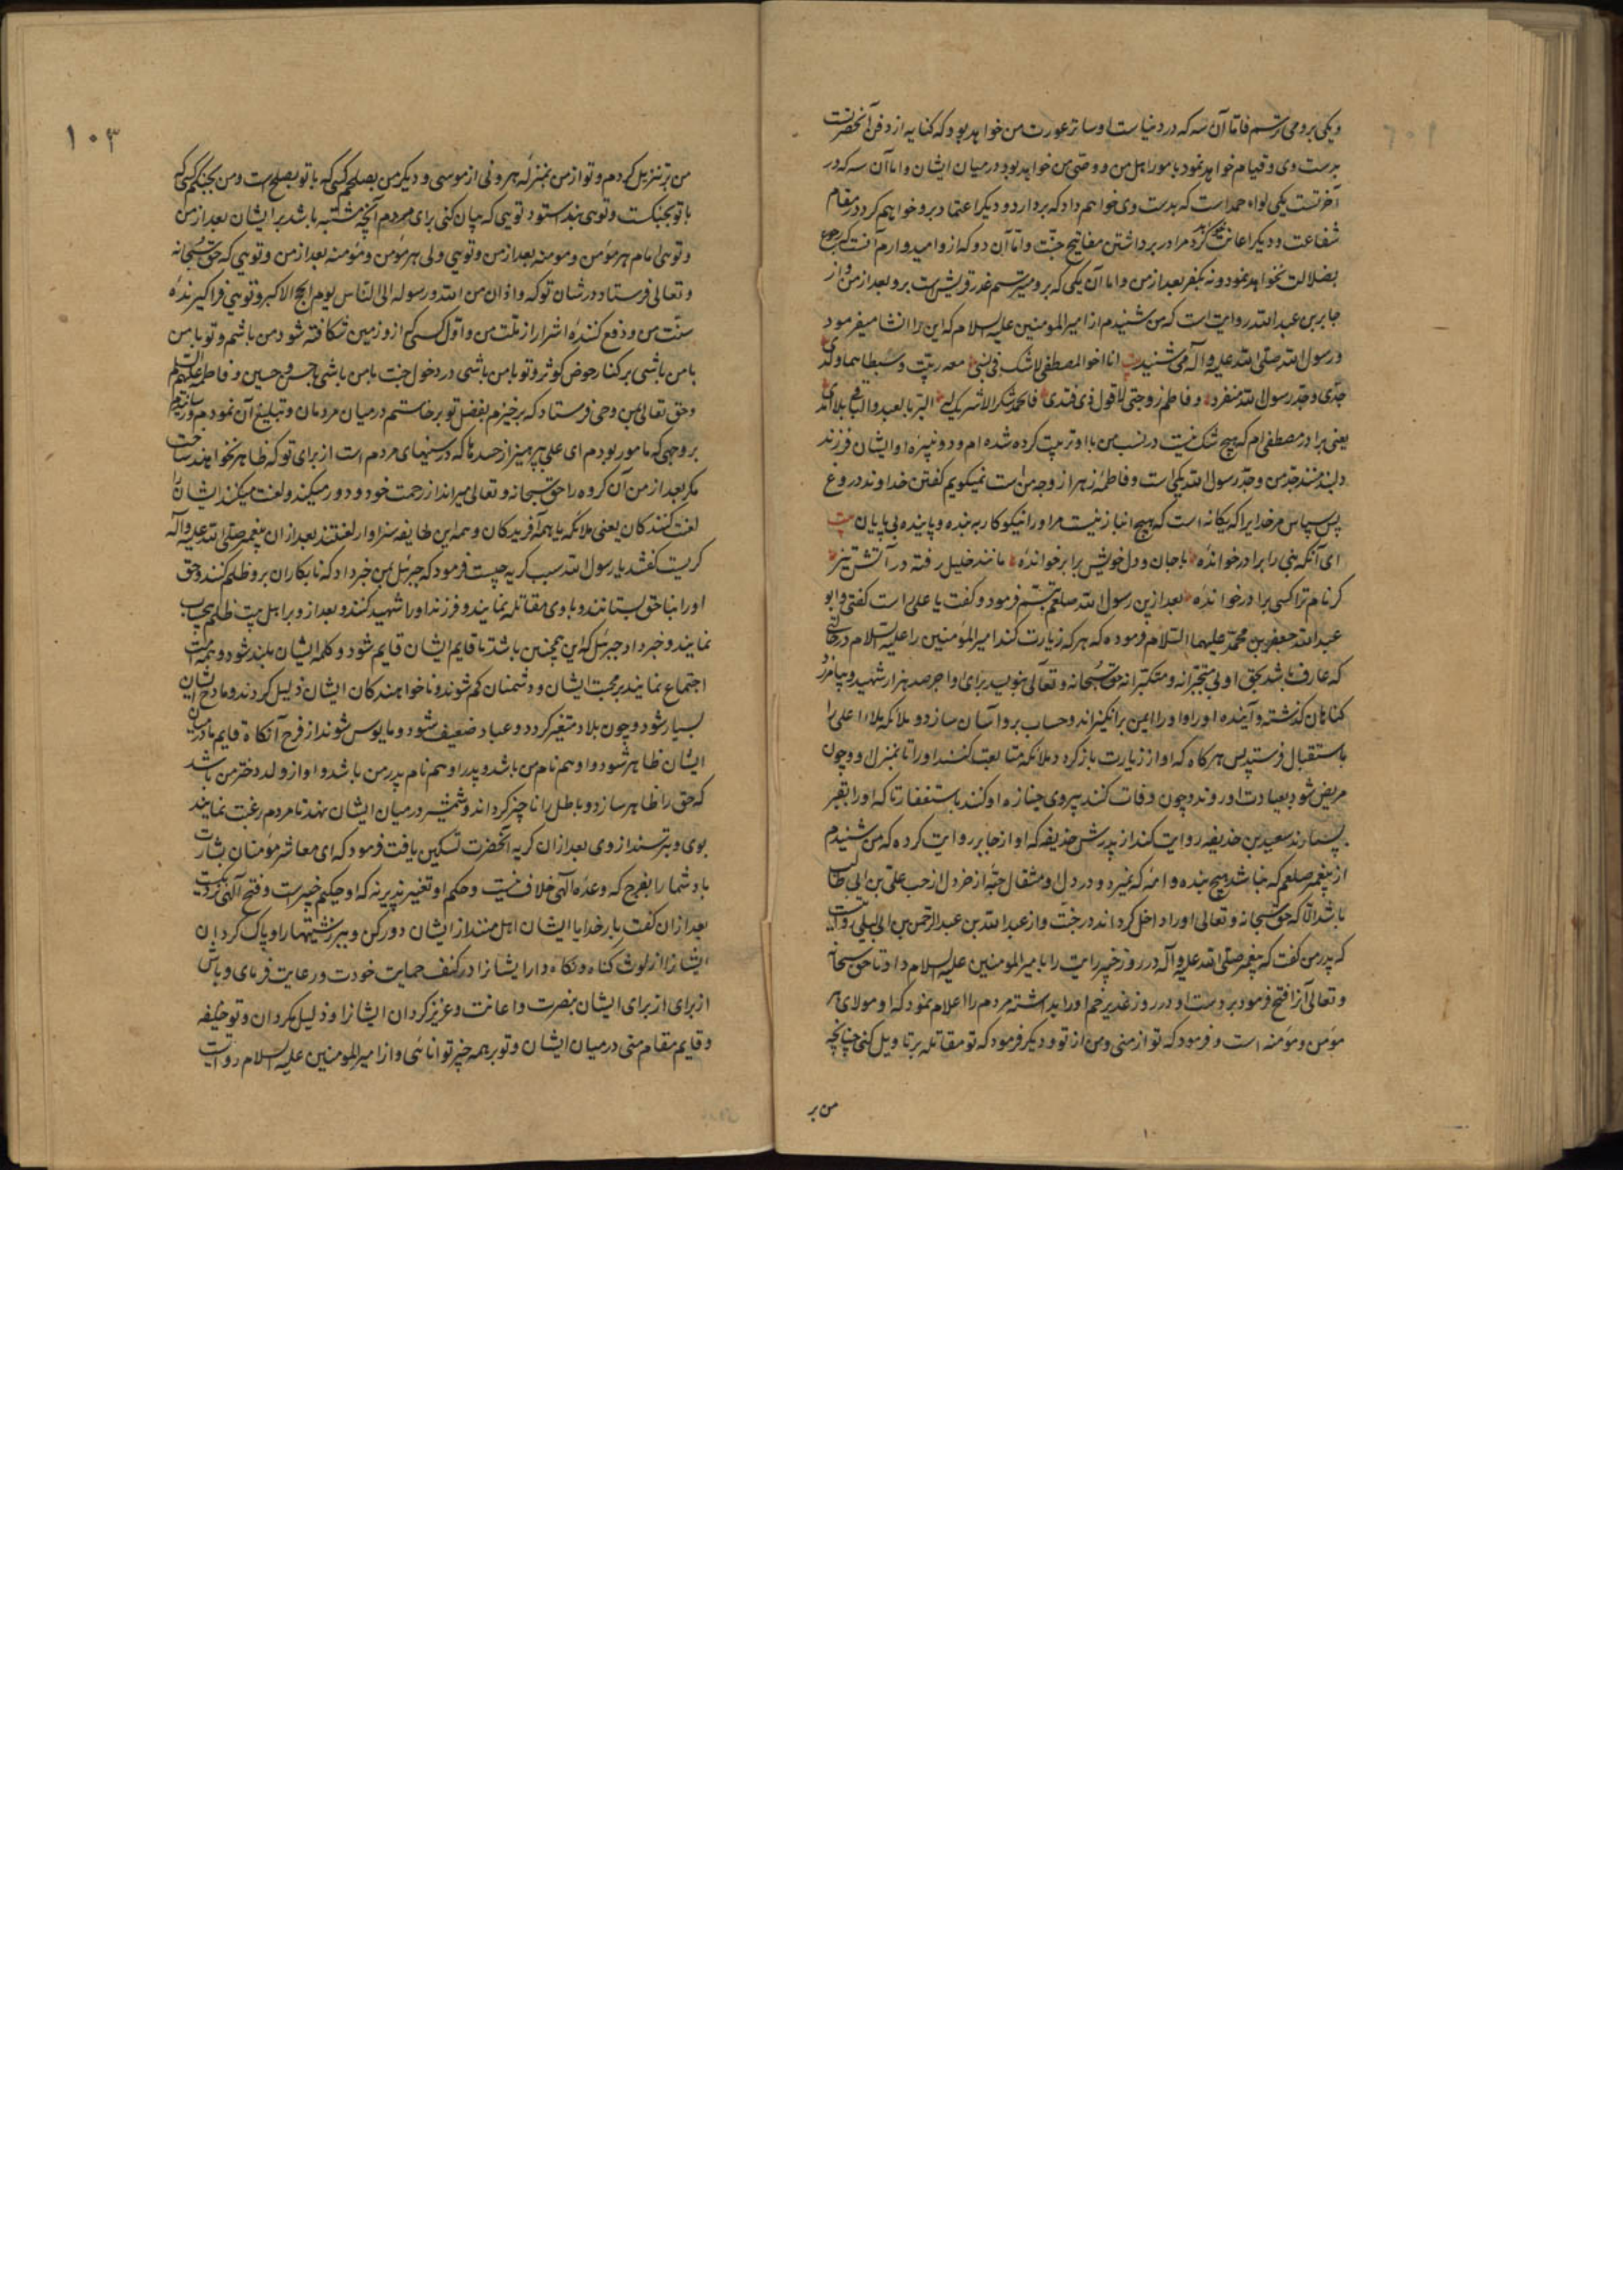 ویکی بر وی می ترسم فاما آن سه که در دنیاست او ساتر عورت من خواهد بود که کنایه از دفن آنحضرتست
بدست وی و قیام خواهد نمود بامور اهل من و وصی من خواهد بود در میان ایشان و اما آن سه که در
آخرتست یکی لواء حمد است که بدست وی خواهم داد که بردارد و دیگر اعتماد برو خواهم کرد در مقام
شفاعت و دیگر اعانت کردن مرا در برداشتن مفاتیح جنت و اما آن دو که ازو امیدوارم آنست که رجوع
بضلالت نخواهد نمود و نه بکفر بعد از من و اما آن یکی که برو میترسم غدر قریش است برو بعد از من و از
جابر بن عبد الله روایت است که من شنیدم از امیر المومنین علیه السلام که این را انشا میفرمود
و رسول الله صلی الله علیه و آله می شنید بیت انا اخو المصطفی لا شک فی نسبی معه ربیت و سبطاه هما ولدی
جدی و جد رسول الله منفرد و فاطم زوجتی لا قول ذی فندی فالحمد شکرا لا شریک له البر بالعبد والباقی بلا امد
یعنی برادر مصطفی ام که هیچ شک نیست در نسب من با او تربیت کرده شده ام و دو نبیره او ایشان فرزند
دلبند منند جد من و جد رسول الله یکی است و فاطمه زهرا زوجه من است نمیکویم کفتن خداوند دروغ
پس سپاس مر خدایرا که یکانه است که هیچ انباز نیست مر او را نیکوکار به بنده و پاینده بی پایان بیت
ای آنکه نبی را برادر خوانده با جان و دل خویش برابر خوانده مانند خلیل رفته در آتش تیز
کر نام ترا کسی برادر خوانده بعد ازین رسول الله صلعم تبسم فرمود و کفت یا علی راست کفتی و ابو
عبد الله جعفر بن محمد علیهما السلام فرموده که هر که زیارت کند امیر المؤمنین را علیه السلام در حالتی
که عارف باشد بحق او بی متجبرانه و متکبرانه حق سبحانه و تعالی بنویسد برای او اجر صد هزار شهید و بیامرزد
کناهان کذشته و آینده او را و او را ایمن برانکیزاند و حساب برو آسان سازد و ملائکه ملاء اعلی را
باستقبال فرستد پس هرکاه که او از زیارت بازکردد ملائکه متابعت کنند او را تا بمنزل او و چون
مریض شود بعیادت او روند و چون وفات کند پیروی جنازه او کنند باستغفار تا که او را بقبر
بسپارند سعید بن حذیفه روایت کند از پدرش حذیفه که او از جابر روایت کرده که من شنیدم
از پیغمبر صلعم که نباشد هیچ بنده و امه که بمیرد و در دل او مثقال حبه از خردل از حب علی بن ابی طالب
باشد الا که حق سبحانه و تعالی او را داخل کرداند در جنت و از عبد الله بن عبد الرحمن بن ابی لیلی روایت
که پدر من کفت که پیغمبر صلی الله علیه و آله در روز خیبر رایت را بامیر المومنین علیه السلام داد تا حق سبحانه
و تعالی آنرا فتح فرمود بر دست او و در روز غدیر خم او را بداشته مردم را اعلام نمود که او مولای هر
مؤمن و مؤمنه است و فرمود که تو از منی و من از تو و دیکر فرمود که تو مقاتله بر تاویل کنی چنانچه
من بر
۱۰۳
من بر تنزیل کردم و تو از من بمنزله هرونی از موسی و دیکر من بصلحم کسی که با تو بصلح است و من بجنکم کسی که
با تو بجنکست و توئی بند استود توئی که بیان کنی برای مردم آنچه مشتبه باشد بر ایشان بعد از من
و توئی امام هر مؤمن و مومنه بعد از من و توئی ولی هر مؤمن و مؤمنه بعد از من و توئی که حق سبحانه
و تعالی فرستاد در شان تو که و اذان من الله و رسوله الی الناس یوم الحج الاکبر و توئی فراکیرنده
سنت من و دفع کننده اشرار از ملت من و اول کسی که ازو زمین شکافته شود من باشم و تو با من
با من باشی بر کنار حوض کوثر و تو با من باشی در دخول جنت با من باشی با حسن و حسین و فاطمه علیهم السلم
و حق تعالی بمن وحی فرستاد که برخیزم بفضل تو برخاستم در میان مردمان و تبلیغ آن نمودم و رسانیدم
بر وجهی که مامور بودم ای علی بپرهیز از حسدها که در سینهای مردم است از برای تو که ظاهر نخواهند ساخت
مکر بعد از من آن کروه را حق سبحانه و تعالی میراند از رحمت خود و دور میکند و لعنت میکند ایشان را
لعنت کنندکان یعنی ملائکه یا همه آفریدکان و همه این طایفه سزاوار لعنتند بعد از ان پیغمبر صلی الله علیه و آله
کریست کفتند یا رسول الله سبب کریه چیست فرمود که جبرئیل بمن خبر داد که نابکاران برو ظلم کنند و حق
او را بناحق بستانند و با وی مقاتله نمایند و فرزند او را شهید کنند و بعد ازو بر اهل بیت ظلم بیحساب
نمایند و خبر داد جبرئیل که این همچنین باشد تا قایم ایشان قایم شود و کلمه ایشان بلند شود و همه امت
اجتماع نمایند بر محبت ایشان و دشمنان کم شوند و ناخواهندکان ایشان ذلیل کردند و مادح ایشان
بسیار شود و چون بلاد متغیر کردد و عباد ضعیف شود و مایوس شوند از فرج آنکاه قایم ما در میان
ایشان ظاهر شود و او هم نام من باشد و پدر او هم نام پدر من باشد و او از ولد دختر من باشد
که حق را ظاهر سازد و باطل را ناچیز کرداند و شمشیر در میان ایشان نهد تا مردم رغبت نمایند
بوی و بترسند از وی بعد از ان کریه آنحضرت تسکین یافت فرمود که ای معاشر مؤمنان بشارت
باد شما را بفرج که وعده الهی خلاف نیست و حکم او تغیر نپذیرنه که او حکیم خبیر است و فتح آلهی نزدیکست
بعد ازان کفت بار خدایا ایشان اهل منند از ایشان دور کن و ببر زشتیها را و پاک کردان
ایشانرا از لوث کناه و نکاه دار ایشانرا در کنف حمایت خودت و رعایت فرمای و باش
از برای از برای ایشان بنصرت و اعانت و عزیز کردان ایشانرا و ذلیل مکردان و تو خلیفه
و قایم مقام منی در میان ایشان و تو بر همه چیز توانائی و از امیر المومنین علیه السلام روایت